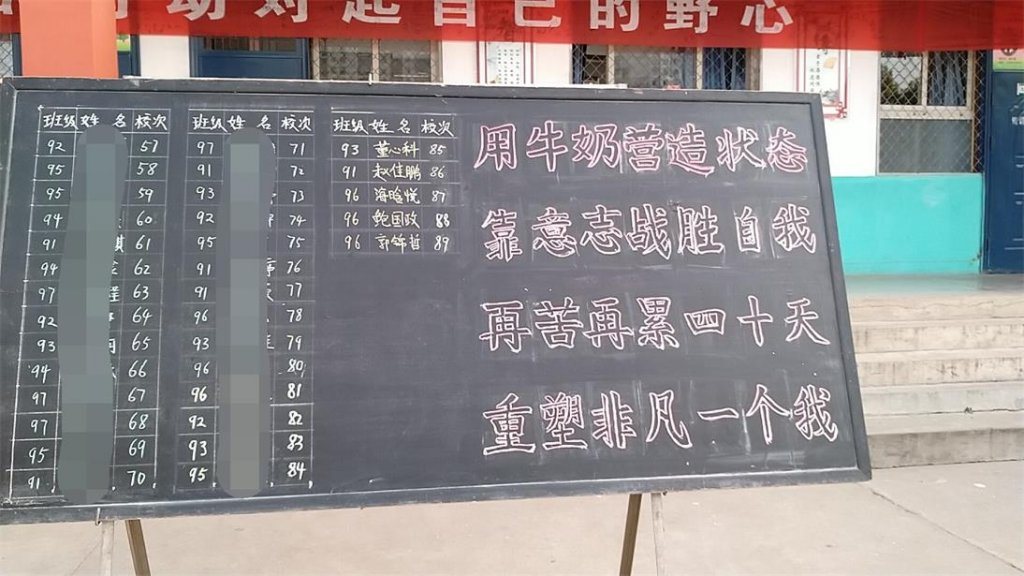 动对起自己的野心
班级 姓 名 校次
92 57
95 58
95 59
94 60
91 61
94 62
97 63
92 64
93 65
94 66
97 67
97 68
95 69
91 70
班级 姓 名 校次
97 71
91 72
93 73
92 74
95 75
91 76
91 77
96 78
93 79
96 80
96 81
92 82
93 83
95 84
班级 姓 名 校次
93 董心科 85
91 赵佳鹏 86
96 海晗悦 87
96 鲍国政 88
96 89
用牛奶营造状态
靠意志战胜自我
再苦再累四十天
重塑非凡一个我